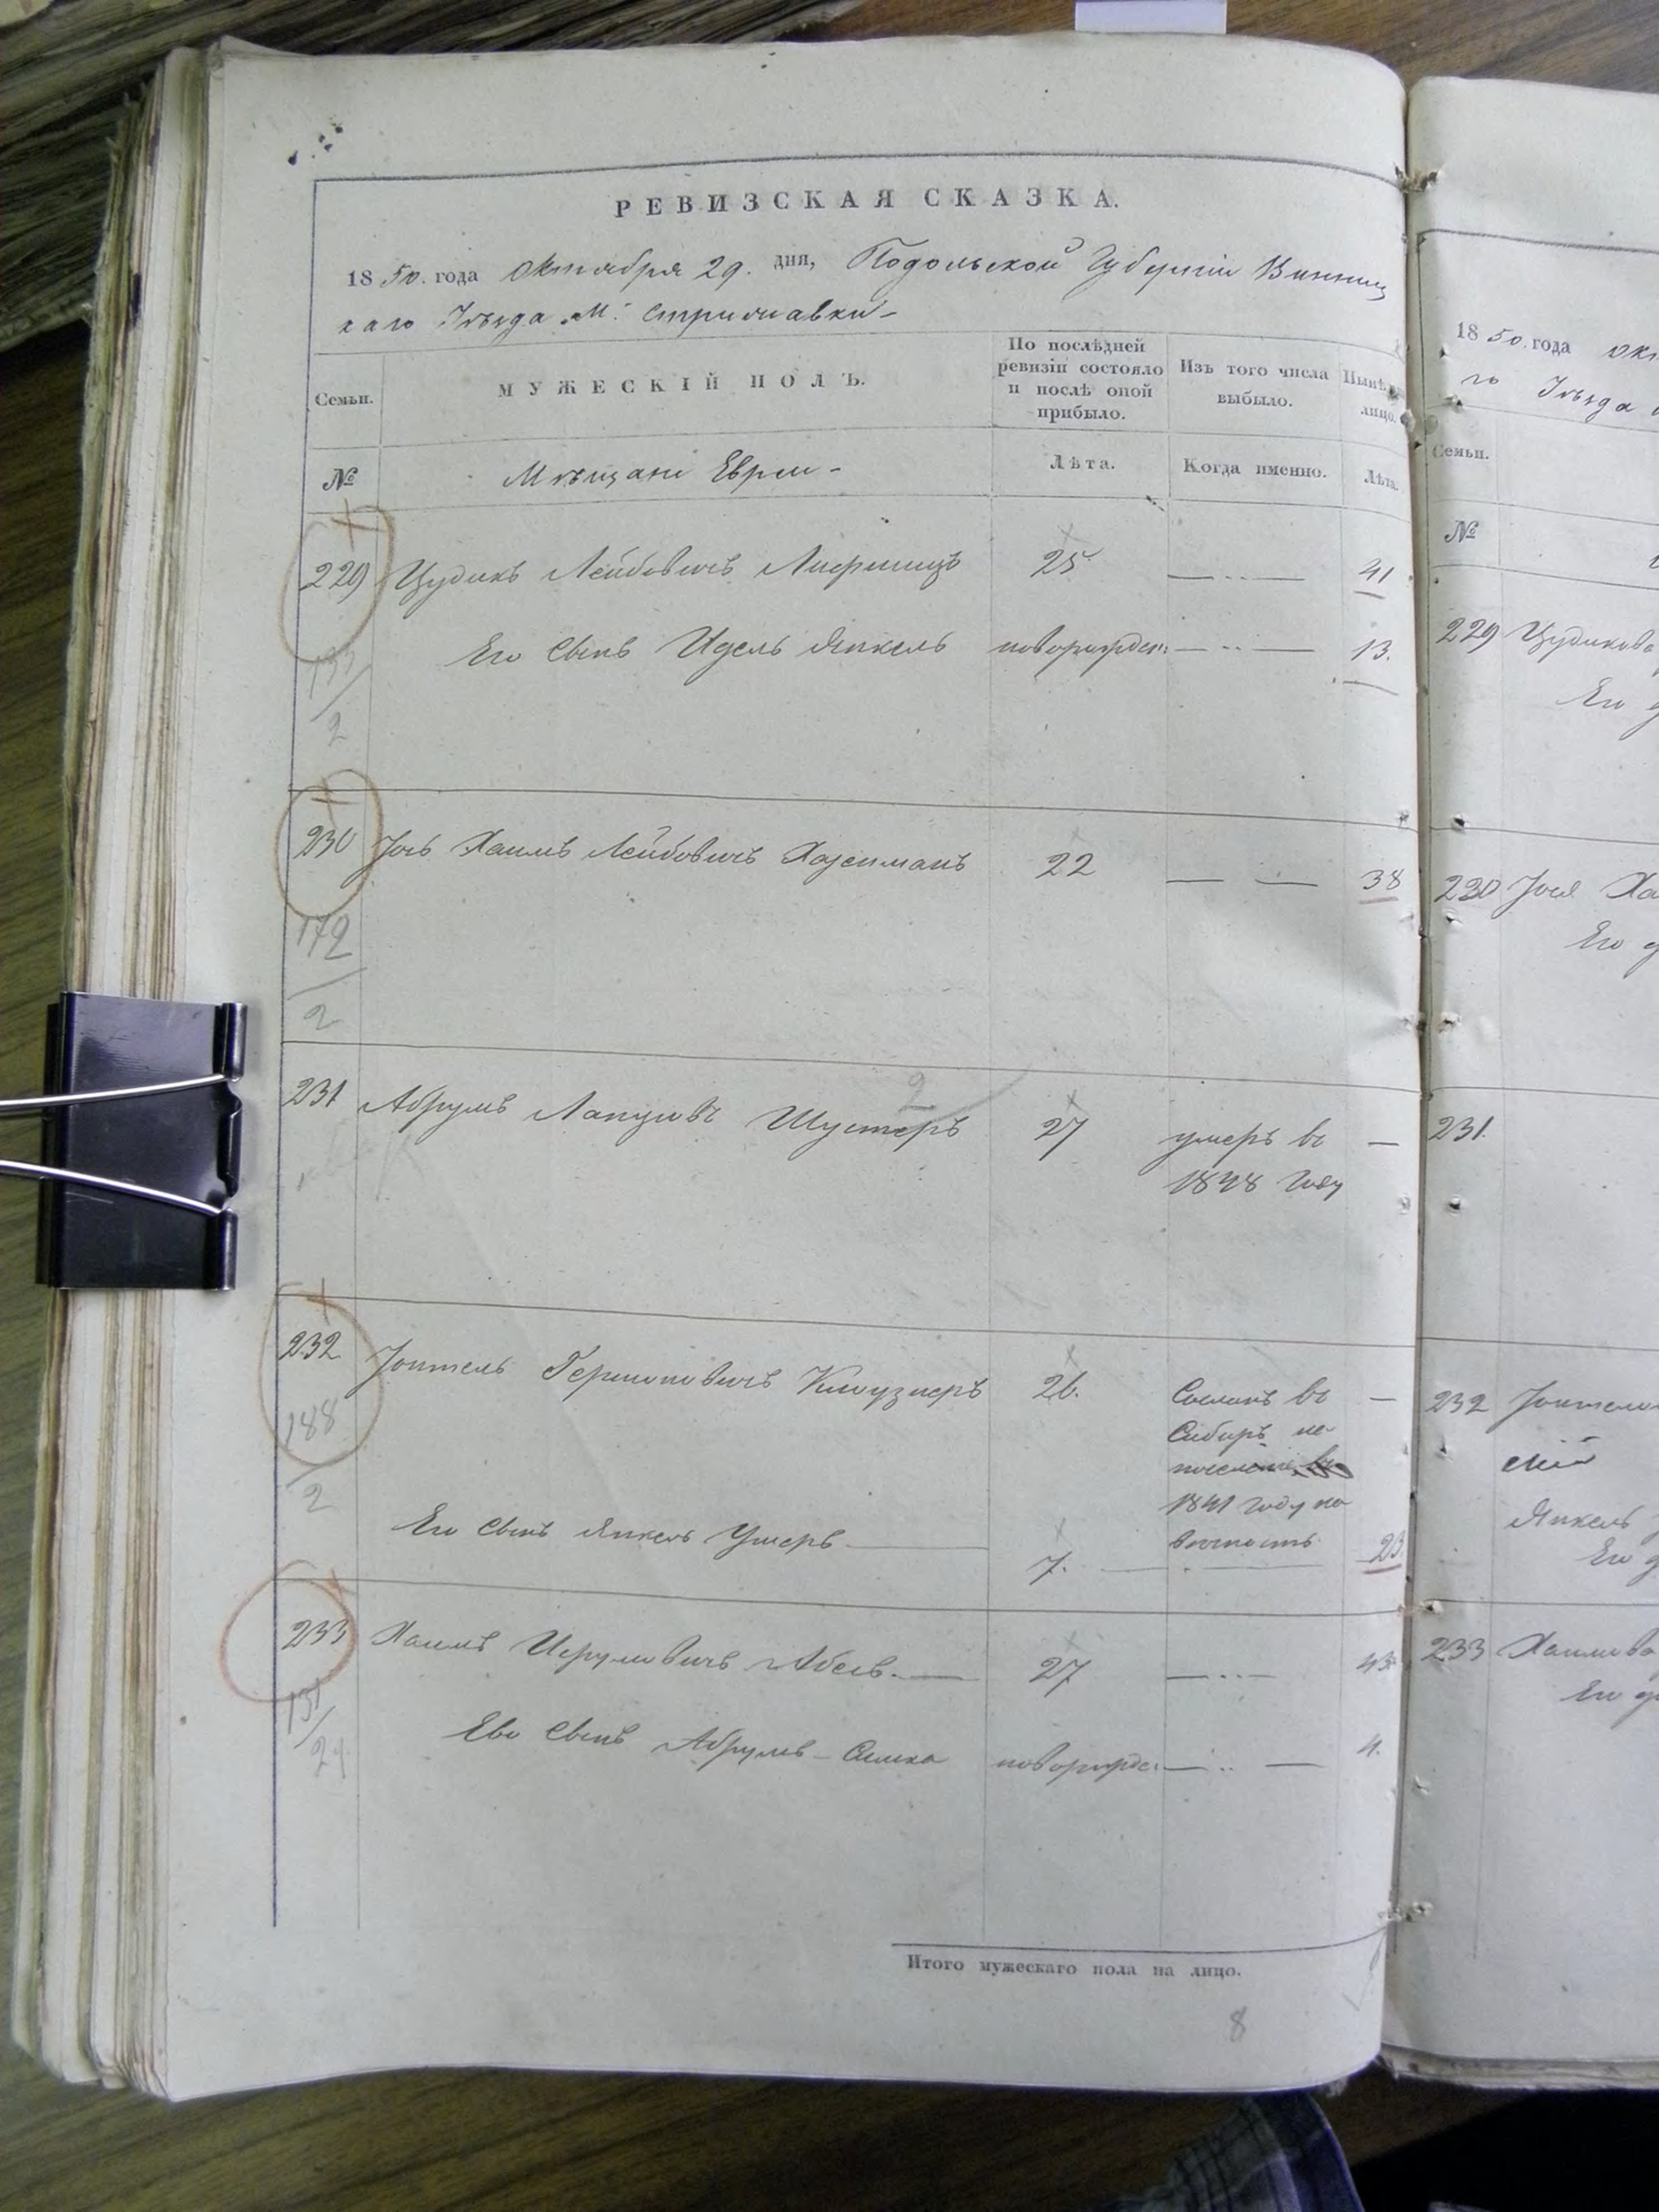 РЕВИЗСКАЯ СКАЗКА.
1850. года Октября 29. дня, Подольской Губерніи Винниц
каго Уѣзда М. Стрижавки
Семьи.
МУЖЕСКІЙ ПОЛЪ.
По послѣдней ревизіи состояло и послѣ оной прибыло.
Изъ того числа выбыло.
Нынѣ лицо.
№
Мѣщане Евреи
Лѣта.
Когда именно.
Лѣта.
229 Цудикъ Лейбовичъ 25 41
Его сынъ Идель Янкель новорожден: 13.
2
230 Іось Хаимъ Лейбовичъ 22 38
172
2
231 Абрумъ Шустеръ 27 умеръ въ —
1848 году
2
232 26. Сосланъ въ —
Сибирь на
188
1841 году на
2
Его сынъ Янкель Умеръ 7. 23
233 Хаимъ Исрумовичъ 27 43
Его сынъ Абрумъ - Симха новорожде: 4.
Итого мужескаго пола на лицо.
8
1850. года Окт
го Уѣзда
Семьи.
№
229 Цудикова
Его
230 Іося Ха
Его
231.
232
Янкель
Его
233 Хаимова
Его